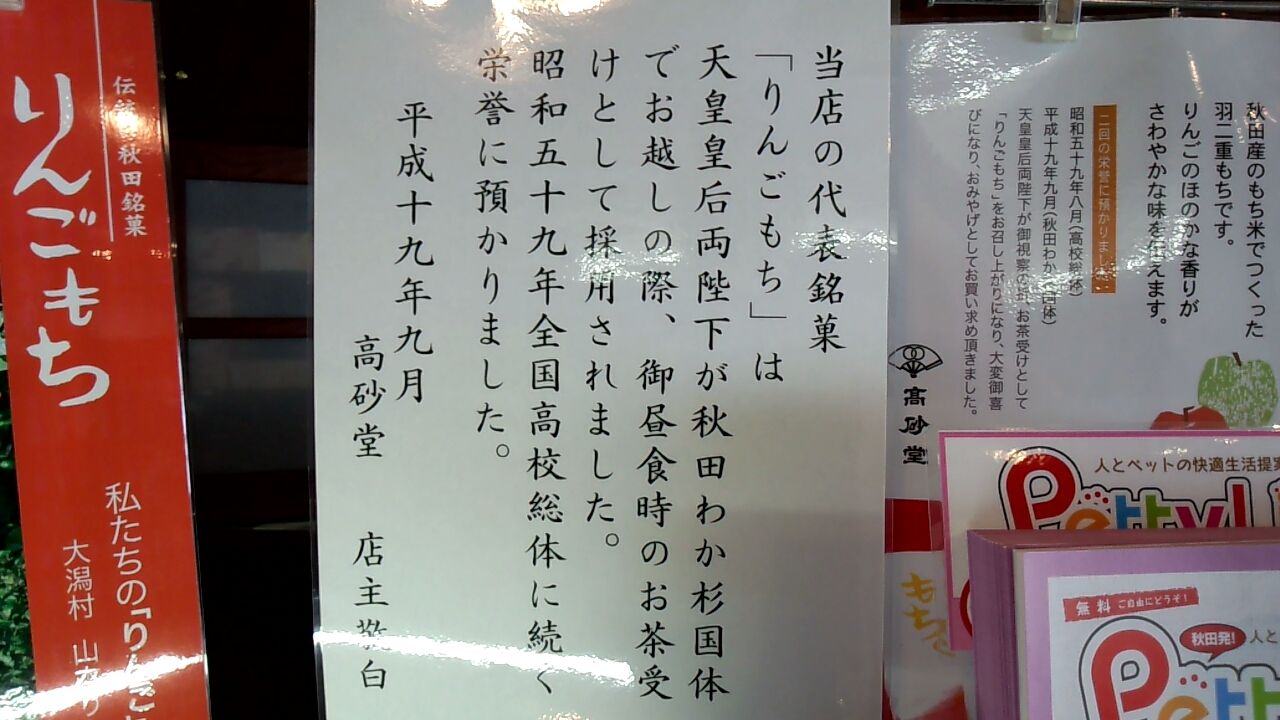 秋田産のもち米でつくった
羽二重もちです。
りんごのほのかな香りが
さわやかな味を伝えます。
二回の栄誉に預かりました
昭和五十九年八月(高校総体)
平成十九年九月(秋田わか杉国体)
天皇皇后両陛下が御視察の折、お茶受けとして
「りんごもち」をお召し上がりになり、大変御喜
びになり、おみやげとしてお買い求め頂きました。
髙砂堂
当店の代表銘菓
「りんごもち」は
天皇皇后両陛下が秋田わか杉国体
でお越しの際、御昼食時のお茶受
けとして採用されました。
昭和五十九年全国高校総体に続く
栄誉に預かりました。
平成十九年九月
高砂堂 店主敬白
伝統の秋田銘菓
りんごもち
私たちの「りんご
大潟村
人とペットの快適生活提案
Petty!
無料 ご自由にどうぞ!
秋田発!
人と
Pett